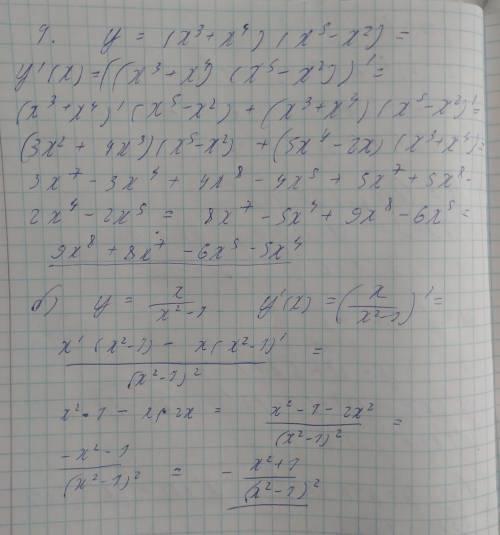 9. y = (x³+x⁴) (x⁵-x²) =
y'(x) = ((x³+x⁴) (x⁵-x²))' =
(x³+x⁴)' (x⁵-x²) + (x³+x⁴) (x⁵-x²)' =
(3x² + 4x³)(x⁵-x²) + (5x⁴-2x) (x³+x⁴) =
3x⁷ - 3x⁴ + 4x⁸ - 4x⁵ + 5x⁷ + 5x⁸ -
2x⁴ - 2x⁵ = 8x⁷ - 5x⁴ + 9x⁸ - 6x⁵ =
9x⁸ + 8x⁷ - 6x⁵ - 5x⁴
б) y = x/(x²-1) y'(x) = (x/(x²-1))' =
(x' (x²-1) - x(x²-1)')/(x²-1)² =
x²-1 - x·2x = (x²-1-2x²)/(x²-1)² =
(-x²-1)/(x²-1)² = - (x²+1)/(x²-1)²